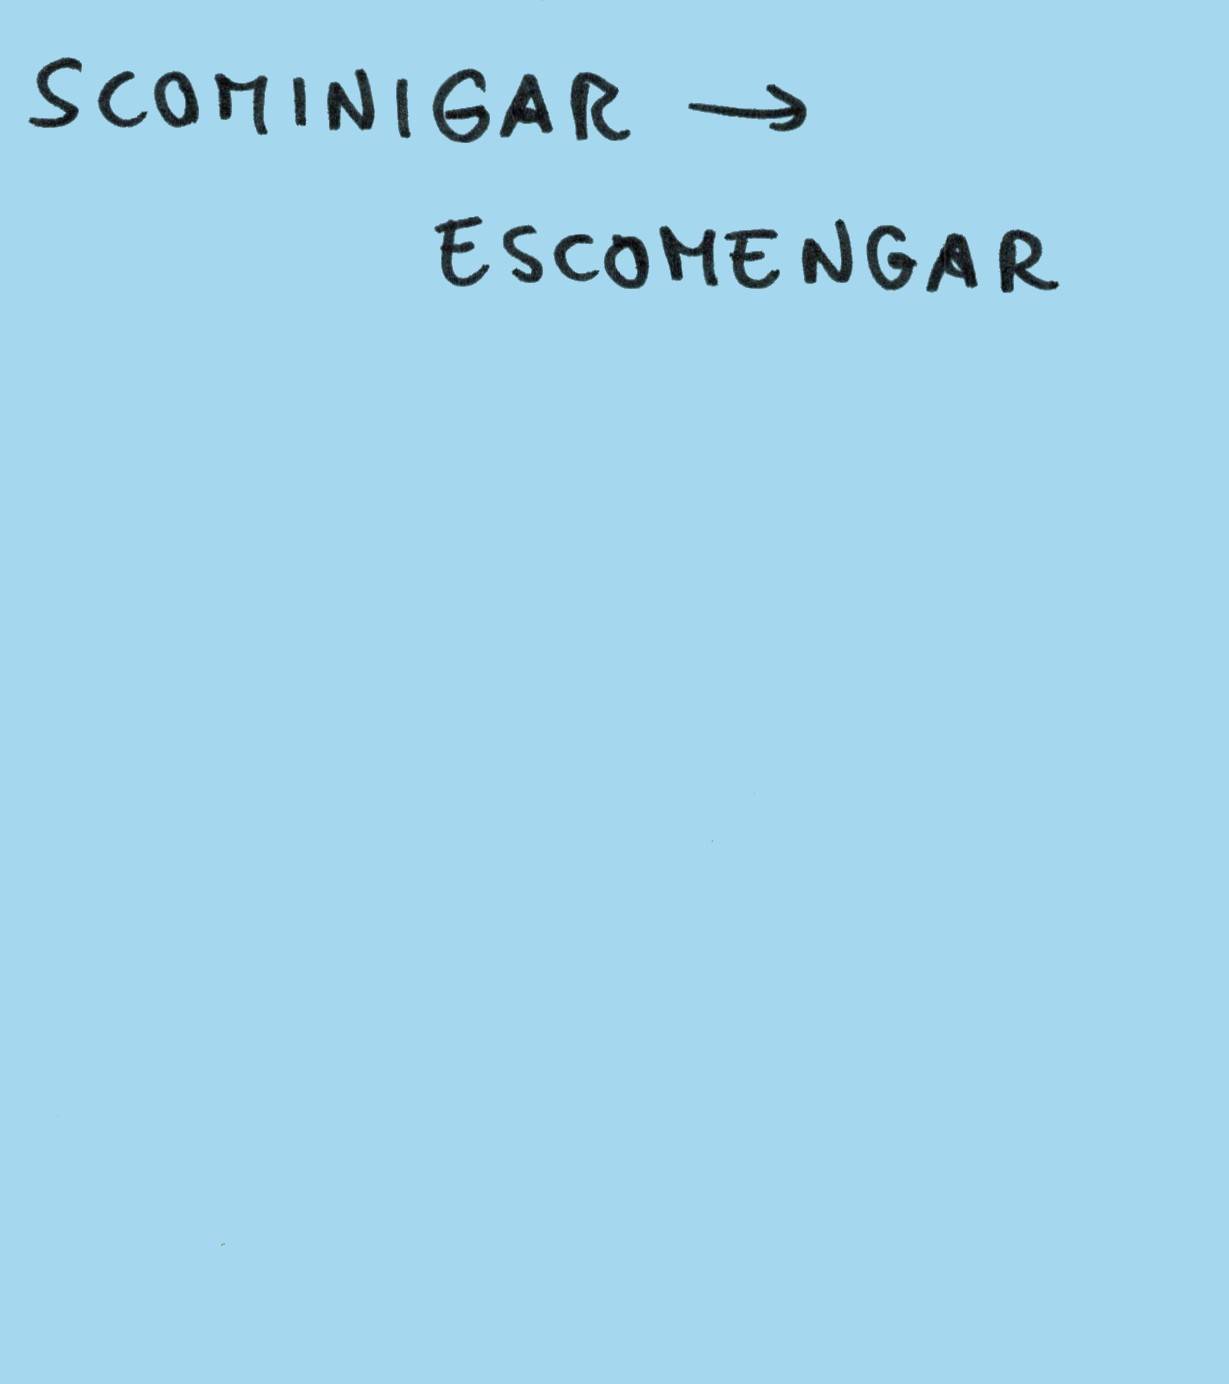 SCOMINIGAR →
ESCOMENGAR